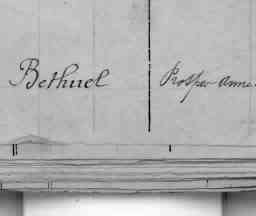 Bethuel
Prosper Anne